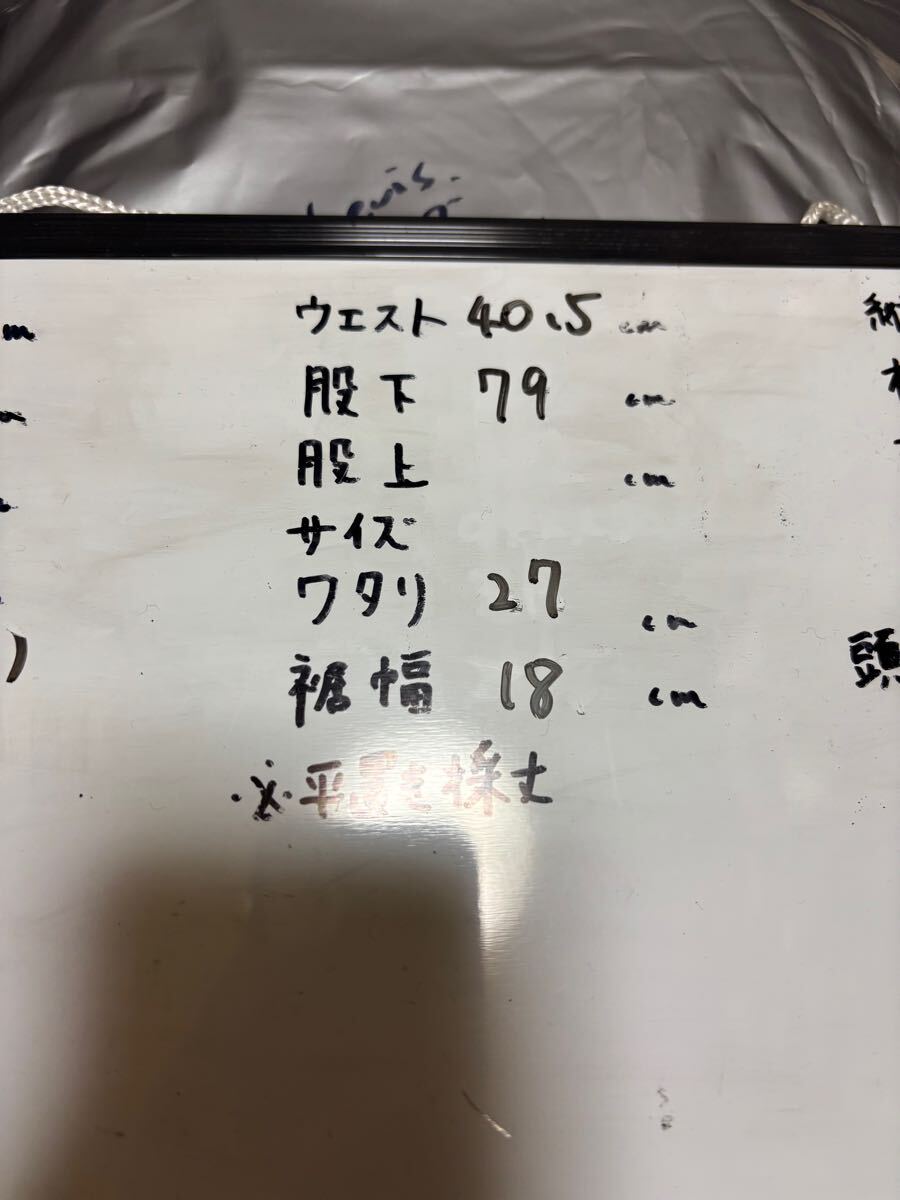 Levis.
ウエスト 40.5 cm
股下 79 cm
股上 cm
サイズ
ワタリ 27 cm
裾幅 18 cm
※平置き採寸
m
頭
)